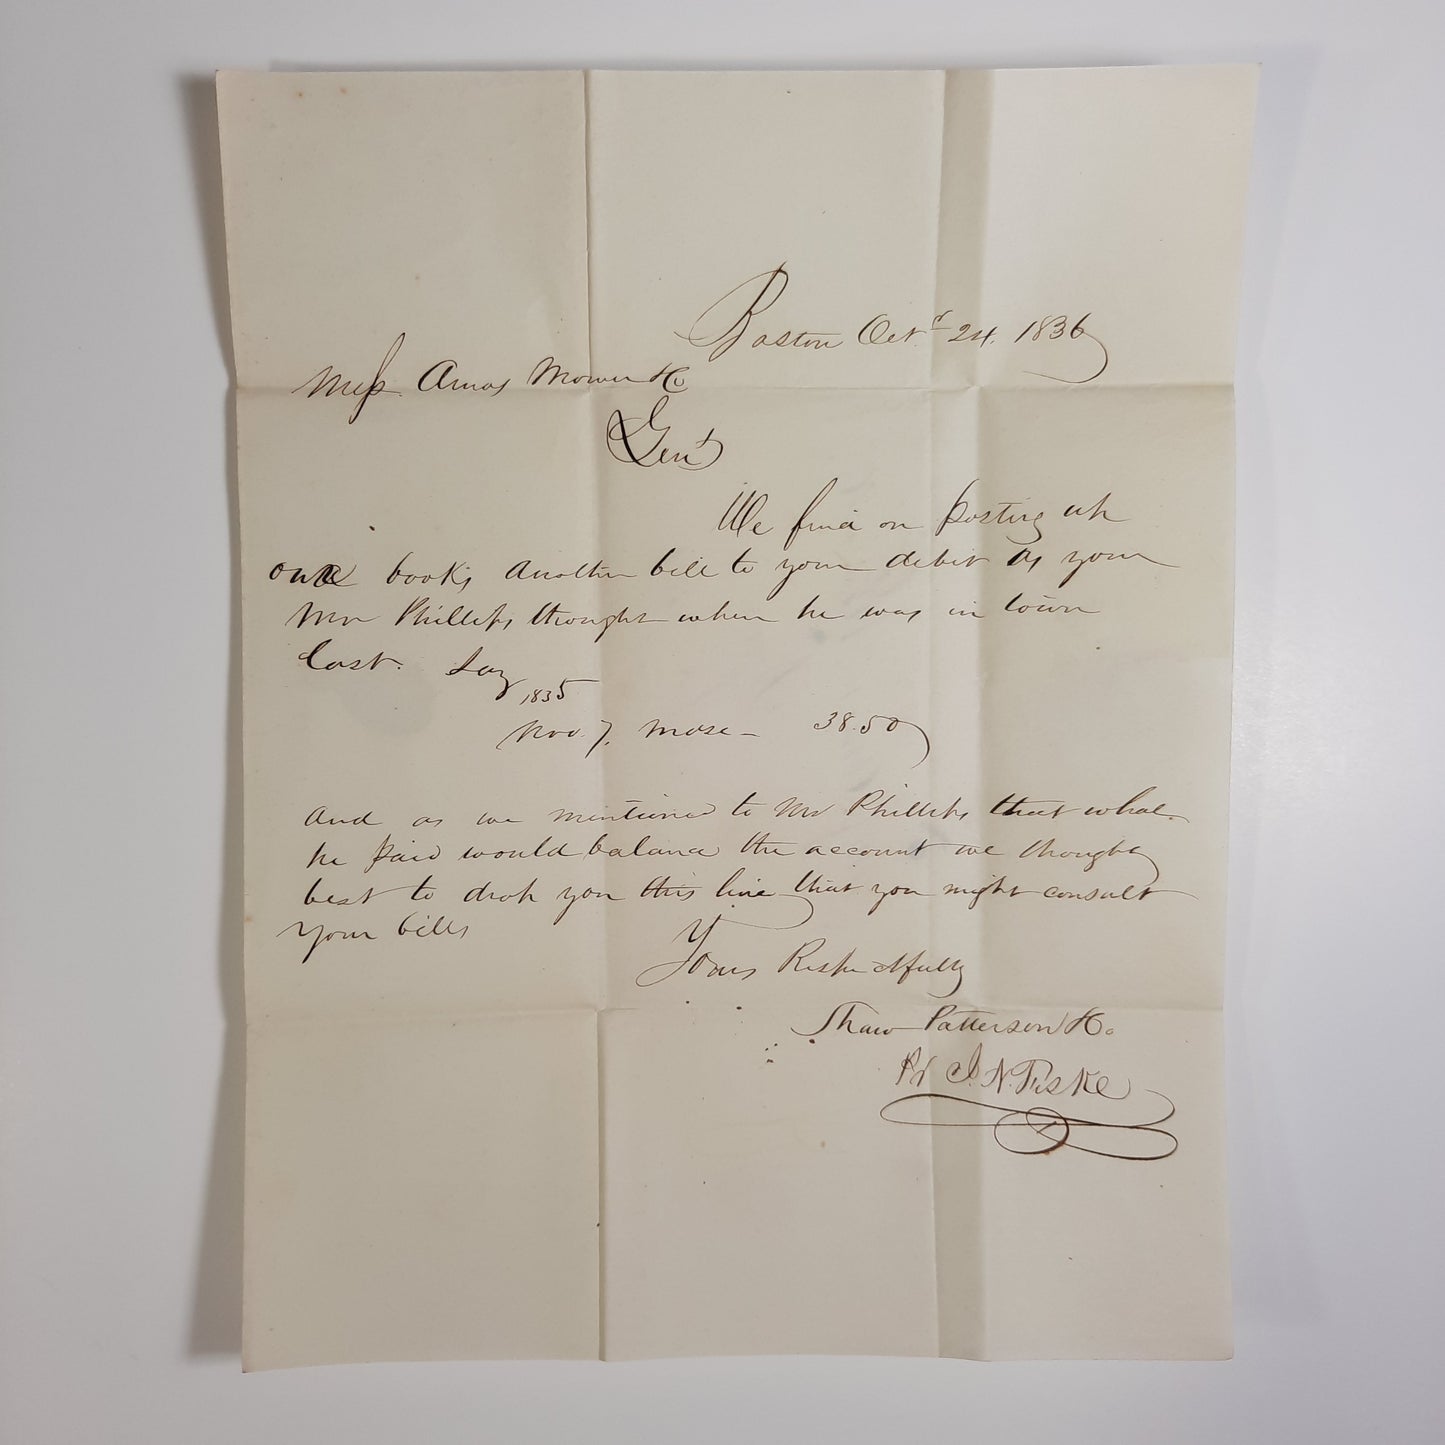 Boston Octr 24. 1836
Mess. Amos Mower & Co
Gent
We find on posting up
our books another bill to your debit as your
Mr Phillips thought when he was in town
last. Say
1835
Nov. 7. Mdse — 38.50
And as we mentioned to Mr Phillips that what
he paid would balance the account we thought
best to drop you this line that you might consult
your bills
Yours Respectfully
Shaw Patterson & Co.
Pr I. N. Fiske